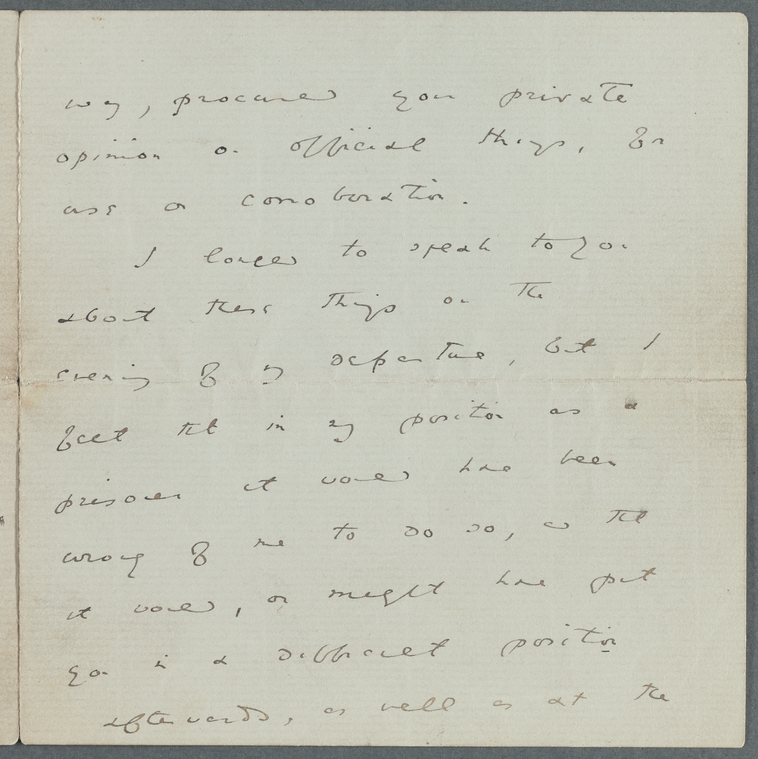 way, procured your private
opinion on official things, for
use or corroboration.
I longed to speak to you
about these things on the
evening of my departure, but I
felt that in my position as a
prisoner it would have been
wrong of me to do so, and that
it would, or might have put
you in a difficult position
afterwards, as well as at the